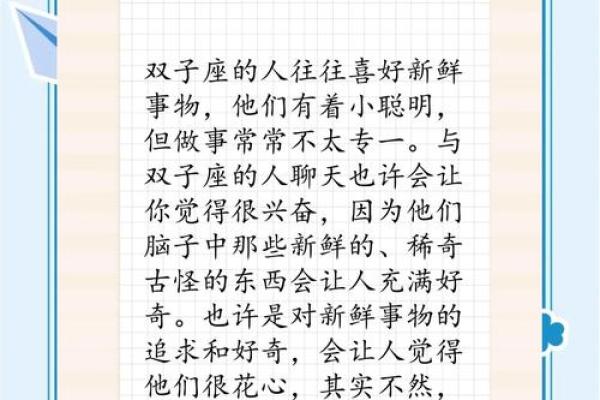 双子座的人往往喜好新鲜
事物，他们有着小聪明，
但做事常常不太专一。与
双子座的人聊天也许会让
你觉得很兴奋，因为他们
脑子中那些新鲜的、稀奇
古怪的东西会让人充满好
奇。也许是对新鲜事物的
追求和好奇，会让人觉得
他们很花心，其实不然，